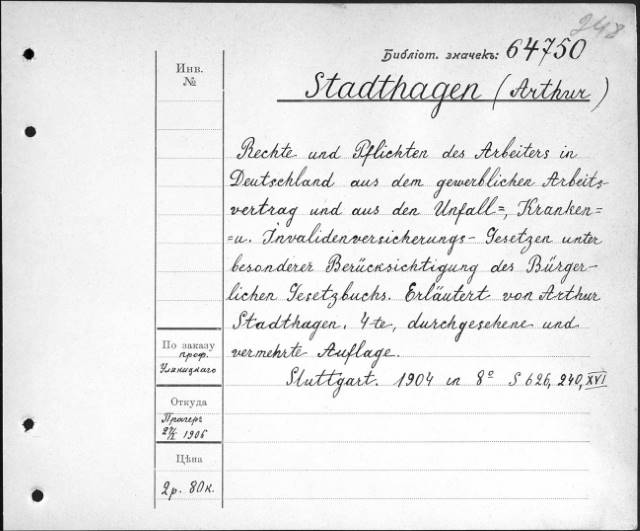 248
Библіот. значекъ: 64750
Инв.
№
Stadthagen (Arthur)
Rechte und Pflichten des Arbeiters in
Deutschland aus dem gewerblichen Arbeits-
vertrag und aus den Unfall=, Kranken=
=u. Invalidenversicherungs-Gesetzen unter
besonderer Berücksichtigung des Bürger-
lichen Gesetzbuchs. Erläutert von Arthur
Stadthagen. 4-te, durchgesehene und
vermehrte Auflage.
Stuttgart. 1904 in 8º S 626, 240, XVI
По заказу
проф.
Уляницкаго
Откуда
Прагеръ
1906
Цѣна
2р. 80к.